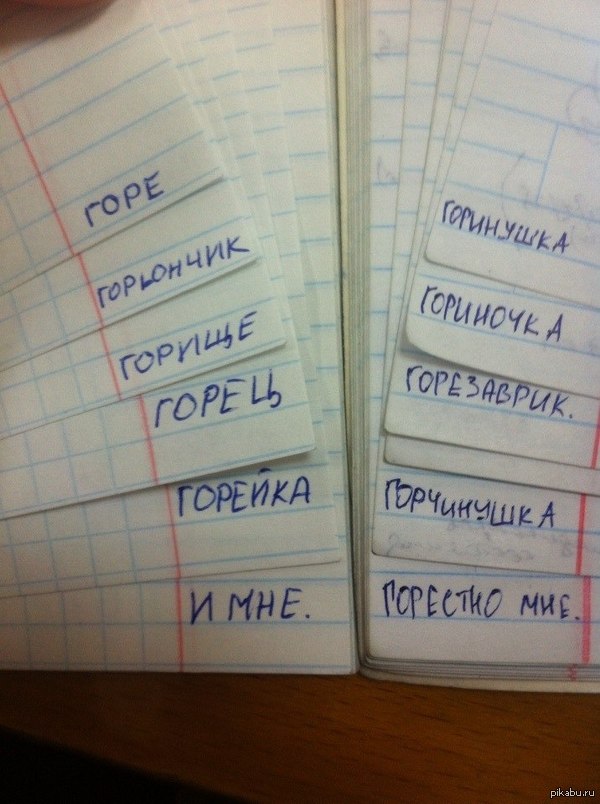 ГОРЕ
ГОРЬОНЧИК
ГОРИЩЕ
ГОРЕЦ
ГОРЕЙКА
И МНЕ.
ГОРИНУШКА
ГОРИНОЧКА
ГОРЕЗАВРИК.
ГОРЧИНУШКА
ГОРЕСТНО МНЕ.
pikabu.ru